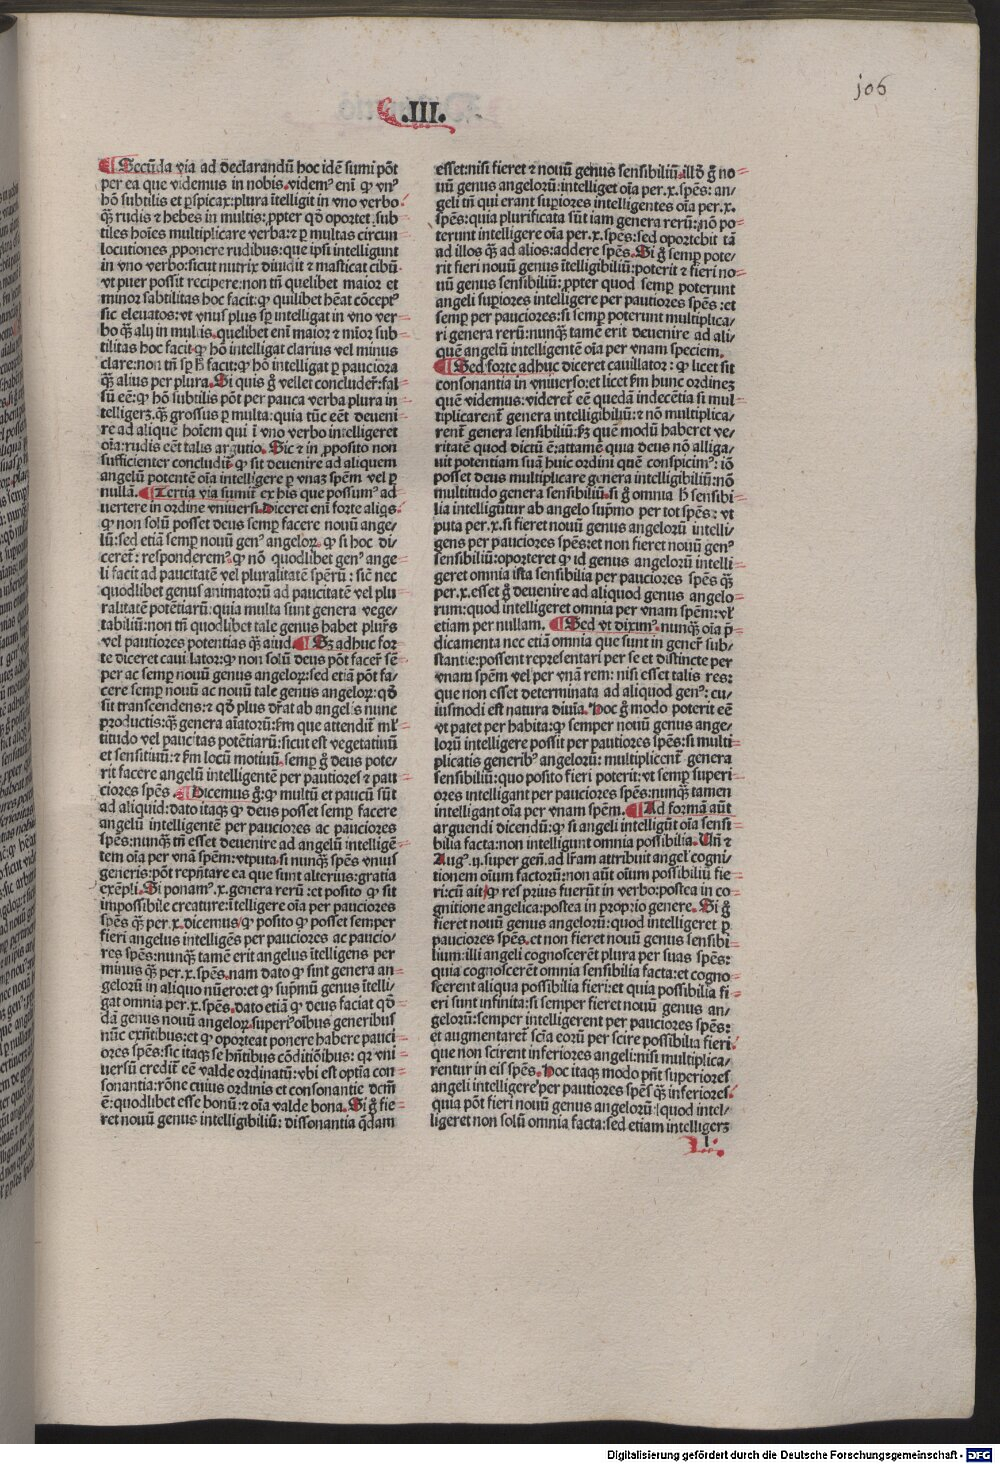 .III.
j06
¶ Secūda via ad declarandū hoc idē sumi pōt
per ea que videmus in nobis. videmꝰ eni ꝙ vnꝰ
hō subtilis et ꝑspicax: plura ītelligit in vno verbo
q̄ȝ rudis ⁊ hebes in multis: ꝓpter qd̄ oportet sub
tiles hoīes multiplicare verba: ⁊ ꝑ multas circun
locutiones ꝓponere rudibus: que ipsi intelligunt
in vno verbo: sicut nutrix diuidit ⁊ masticat cibū
vt puer possit recipere: non tn̄ quelibet maior et
minor sabtilitas hoc facit: ꝙ quilibet hēat cōceptꝰ
sic eleuatos: vt vnus plus sp̄ intelligat in vno ver-
bo q̄ȝ alij in multis. quelibet eni maior ⁊ mīor sub-
tilitas hoc facit ꝙ hō intelligat clarius vel minus
clare: non tn̄ sp̄ h̄ facit: ꝙ hō intelligat ꝑ pauciora
q̄ȝ alius per plura. Si quis g̊ vellet concluder̄: fal-
sū eē: ꝙ hō subtilis pōt per pauca verba plura in-
telligerȝ. q̄ȝ grossus ꝑ multa: quia tūc eēt deueni
re ad aliquē hoīem qui ī vno verbo intelligeret
oīa: rudis eēt talis argutio. Sic ⁊ in ꝓposito non
sufficienter concludit: ꝙ sit deuenire ad aliquem
angelū potentē oīa intelligere ꝑ vnaȝ spēm vel ꝑ
nullā. ¶ Tertia via sumit̄ ex his que possumꝰ ad
uertere in ordine vniuersi. Diceret eni forte aliqs
ꝙ non solū posset deus semꝑ facere nouū ange-
lū: sed etiā semꝑ nouū genꝰ angeloꝝ. ꝙ si hoc di-
ceret̄: responderemꝰ ꝙ nō quodlibet genꝰ ange
li facit ad paucitatē vel pluralitatē spērū: sic̄ nec
quodlibet genus animatorū ad paucitatē vel plu-
ralitatē potētiarū: quia multa sunt genera vege-
tabiliū: non tn̄ quodlibet tale genus habet plur̄s
vel pautiores potentias q̄ȝ aiiud. ¶ Sȝ adhuc for
te diceret caui lator: ꝙ non solū deus pōt facer̄ sē
per ac semꝑ nouū genus angeloꝝ: sed etiā pōt fa-
cere semꝑ nouū ac nouū tale genus angeloꝝ: qd̄
sit transcendens: ⁊ qd̄ plus dr̄at ab angelis nunc
productis: q̄ȝ genera aīatorū: ẜm que attendit̄ ml̄
titudo vel paucitas potētiarū: sicut est vegetatiuū
et sensitiuū: ⁊ ẜm locū motiuū. semꝑ g̊ deus pote-
rit facere angelū intelligentē per pautiores ⁊ pau
ciores spēs. ¶ Dicemus g̊: ꝙ multū et paucū sūt
ad aliquid: dato itaqȝ ꝙ deus posset semꝑ facere
angelū intelligentē per pauciores ac pauciores
spēs: nunq̄ȝ tn̄ esset deuenire ad angelū intelligē-
tem oīa per vnā spēm: vtputa si nunq̄ȝ spēs vnius
generis: pōt repn̄tare ea que sunt alterius: gratia
exēpli. Si ponamꝰ .x. genera rerū: et posito ꝙ sit
impossibile creature: ītelligere oīa per pauciores
spēs q̄ȝ per .x. dicemus: ꝙ posito ꝙ posset semper
fieri angelus intelligēs per pauciores ac paucio-
res spēs: nunq̄ȝ tamē erit angelus ītelligens per
minus q̄ȝ per .x. spēs. nam dato ꝙ sint genera an-
gelorū in aliquo nūero: et ꝙ supmū genus ītelli-
gat omnia per .x. spēs. dato etiā ꝙ deus faciat qd̄
dā genus nouū angeloꝝ. superiꝰ oībus generibus
nūc exn̄tibus: et ꝙ oporteat ponere habere pauci
ores spēs: sic itaqȝ se hn̄tibus cōditiōibus: qr vni
uersū credit̄ eē valde ordinatū: vbi est optīa con-
sonantia: rōne cuius ordinis et consonantie dcm̄
ē: quodlibet esse bonū: ⁊ oīa valde bona. Si g̊ fie-
ret nouū genus intelligibiliū: dissonantia q̄dam
esset: nisi fieret ⁊ nouū genus sensibiliū. illd̄ g̊ no
uū genus angelorū: intelliget oīa per .x. spēs: an-
geli tn̄ qui erant supiores intelligentes oīa per .x.
spēs: quia plurificata sūt iam genera rerū: nō po-
terunt intelligere oīa per .x. spēs: sed oportebit tā
ad illos q̄ȝ ad alios: addere spēs. Si g̊ semꝑ pote-
rit fieri nouū genus ītelligibiliū: poterit ⁊ fieri no-
uū genus sensibiliū: ꝓpter quod semꝑ poterunt
angeli supiores intelligere per pautiores spēs: et
semꝑ per pauciores: si semꝑ poterunt multiplica-
ri genera rerū: nunq̄ȝ tamē erit deuenire ad ali-
quē angelū intelligentē oīa per vnam speciem.
¶ Sed forte adhuc diceret cauillator: ꝙ licet sit
consonantia in vniuerso: et licet ẜm hunc ordineȝ
quē videmus: videret̄ eē quedā indecētia si mul-
tiplicarent̄ genera intelligibiliū: ⁊ nō multiplica-
rent̄ genera sensibiliū: ẜȝ quē modū haberet ve-
ritatē quod dictū ē: attamē quia deus nō alliga-
uit potentiam suā huic ordini quē conspicimꝰ: iō
posset deus multiplicare genera intelligibiliū: nō
multitudo genera sensibiliū. si g̊ omnia h̄ sensibi-
lia intelligūtur ab angelo supmo per tot spēs: vt
puta per .x. si fieret nouū genus angelorū intelli-
gens per pauciores spēs: et non fieret nouū genꝰ
sensibiliū: oporteret ꝙ id genus angelorū intelli-
geret omnia ista sensibilia per pauciores spēs q̄ȝ
per .x. esset g̊ deuenire ad aliquod genus angelo-
rum: quod intelligeret omnia per vnam spēm: vl̄
etiam per nullam. ¶ Sed vt diximꝰ. nunq̄ȝ oīa p̄
dicamenta nec etiā omnia que sunt in gener̄ sub-
stantie: possent representari per se et distincte per
vnam spēm vel per vnā rem: nisi esset talis res:
que non esset determinata ad aliquod genꝰ: cu-
iusmodi est natura diuīa. Hoc g̊ modo poterit eē
vt patet per habita: ꝙ semper nouū genus ange-
lorū intelligere possit per pautiores spēs: si multi-
plicatis generibꝰ angelorū: multiplicent̄ genera
sensibiliū: quo posito fieri poterit: vt semꝑ superi-
ores intelligant per pauciores spēs: nunq̄ȝ tamen
intelligant oīa per vnam spēm. ¶ Ad formā aūt
arguendi dicendū: ꝙ si angeli intelligūt oīa sensi
bilia facta: non intelligunt omnia possibilia. Vn̄ ⁊
Augꝰ .ij. super gen̄. ad lr̄am attribuit angelꝰ cogni-
tionem oīum factorū: non aūt oīum possibiliū fie-
ri: cū ait ꝙ res prius fuerūt in verbo: postea in co-
gnitione angelica: postea in proprio genere. Si g̊
fieret nouū genus angelorū: quod intelligeret ꝑ
pauciores spēs. et non fieret nouū genus sensibi-
lium: illi angeli cognoscerēt plura per suas spēs:
quia cognoscerēt omnia sensibilia facta: et cogno-
scerent aliqua possibilia fieri: et quia possibilia fi-
eri sunt infinita: si semper fieret nouū genus an-
gelorū: semper intelligerent per pauciores spēs:
et augmentaret̄ scīa eorū per scire possibilia fieri:
que non scirent inferiores angeli: nisi multiplica-
rentur in eis spēs. Hoc itaqȝ modo pn̄t superiores
angeli intelligere per pautiores spēs q̄ȝ inferiores:
quia pōt fieri nouū genus angelorū: quod intel-
ligeret non solū omnia facta: sed etiam intelligerȝ
l
Digitalisierung gefördert durch die Deutsche Forschungsgemeinschaft - DFG